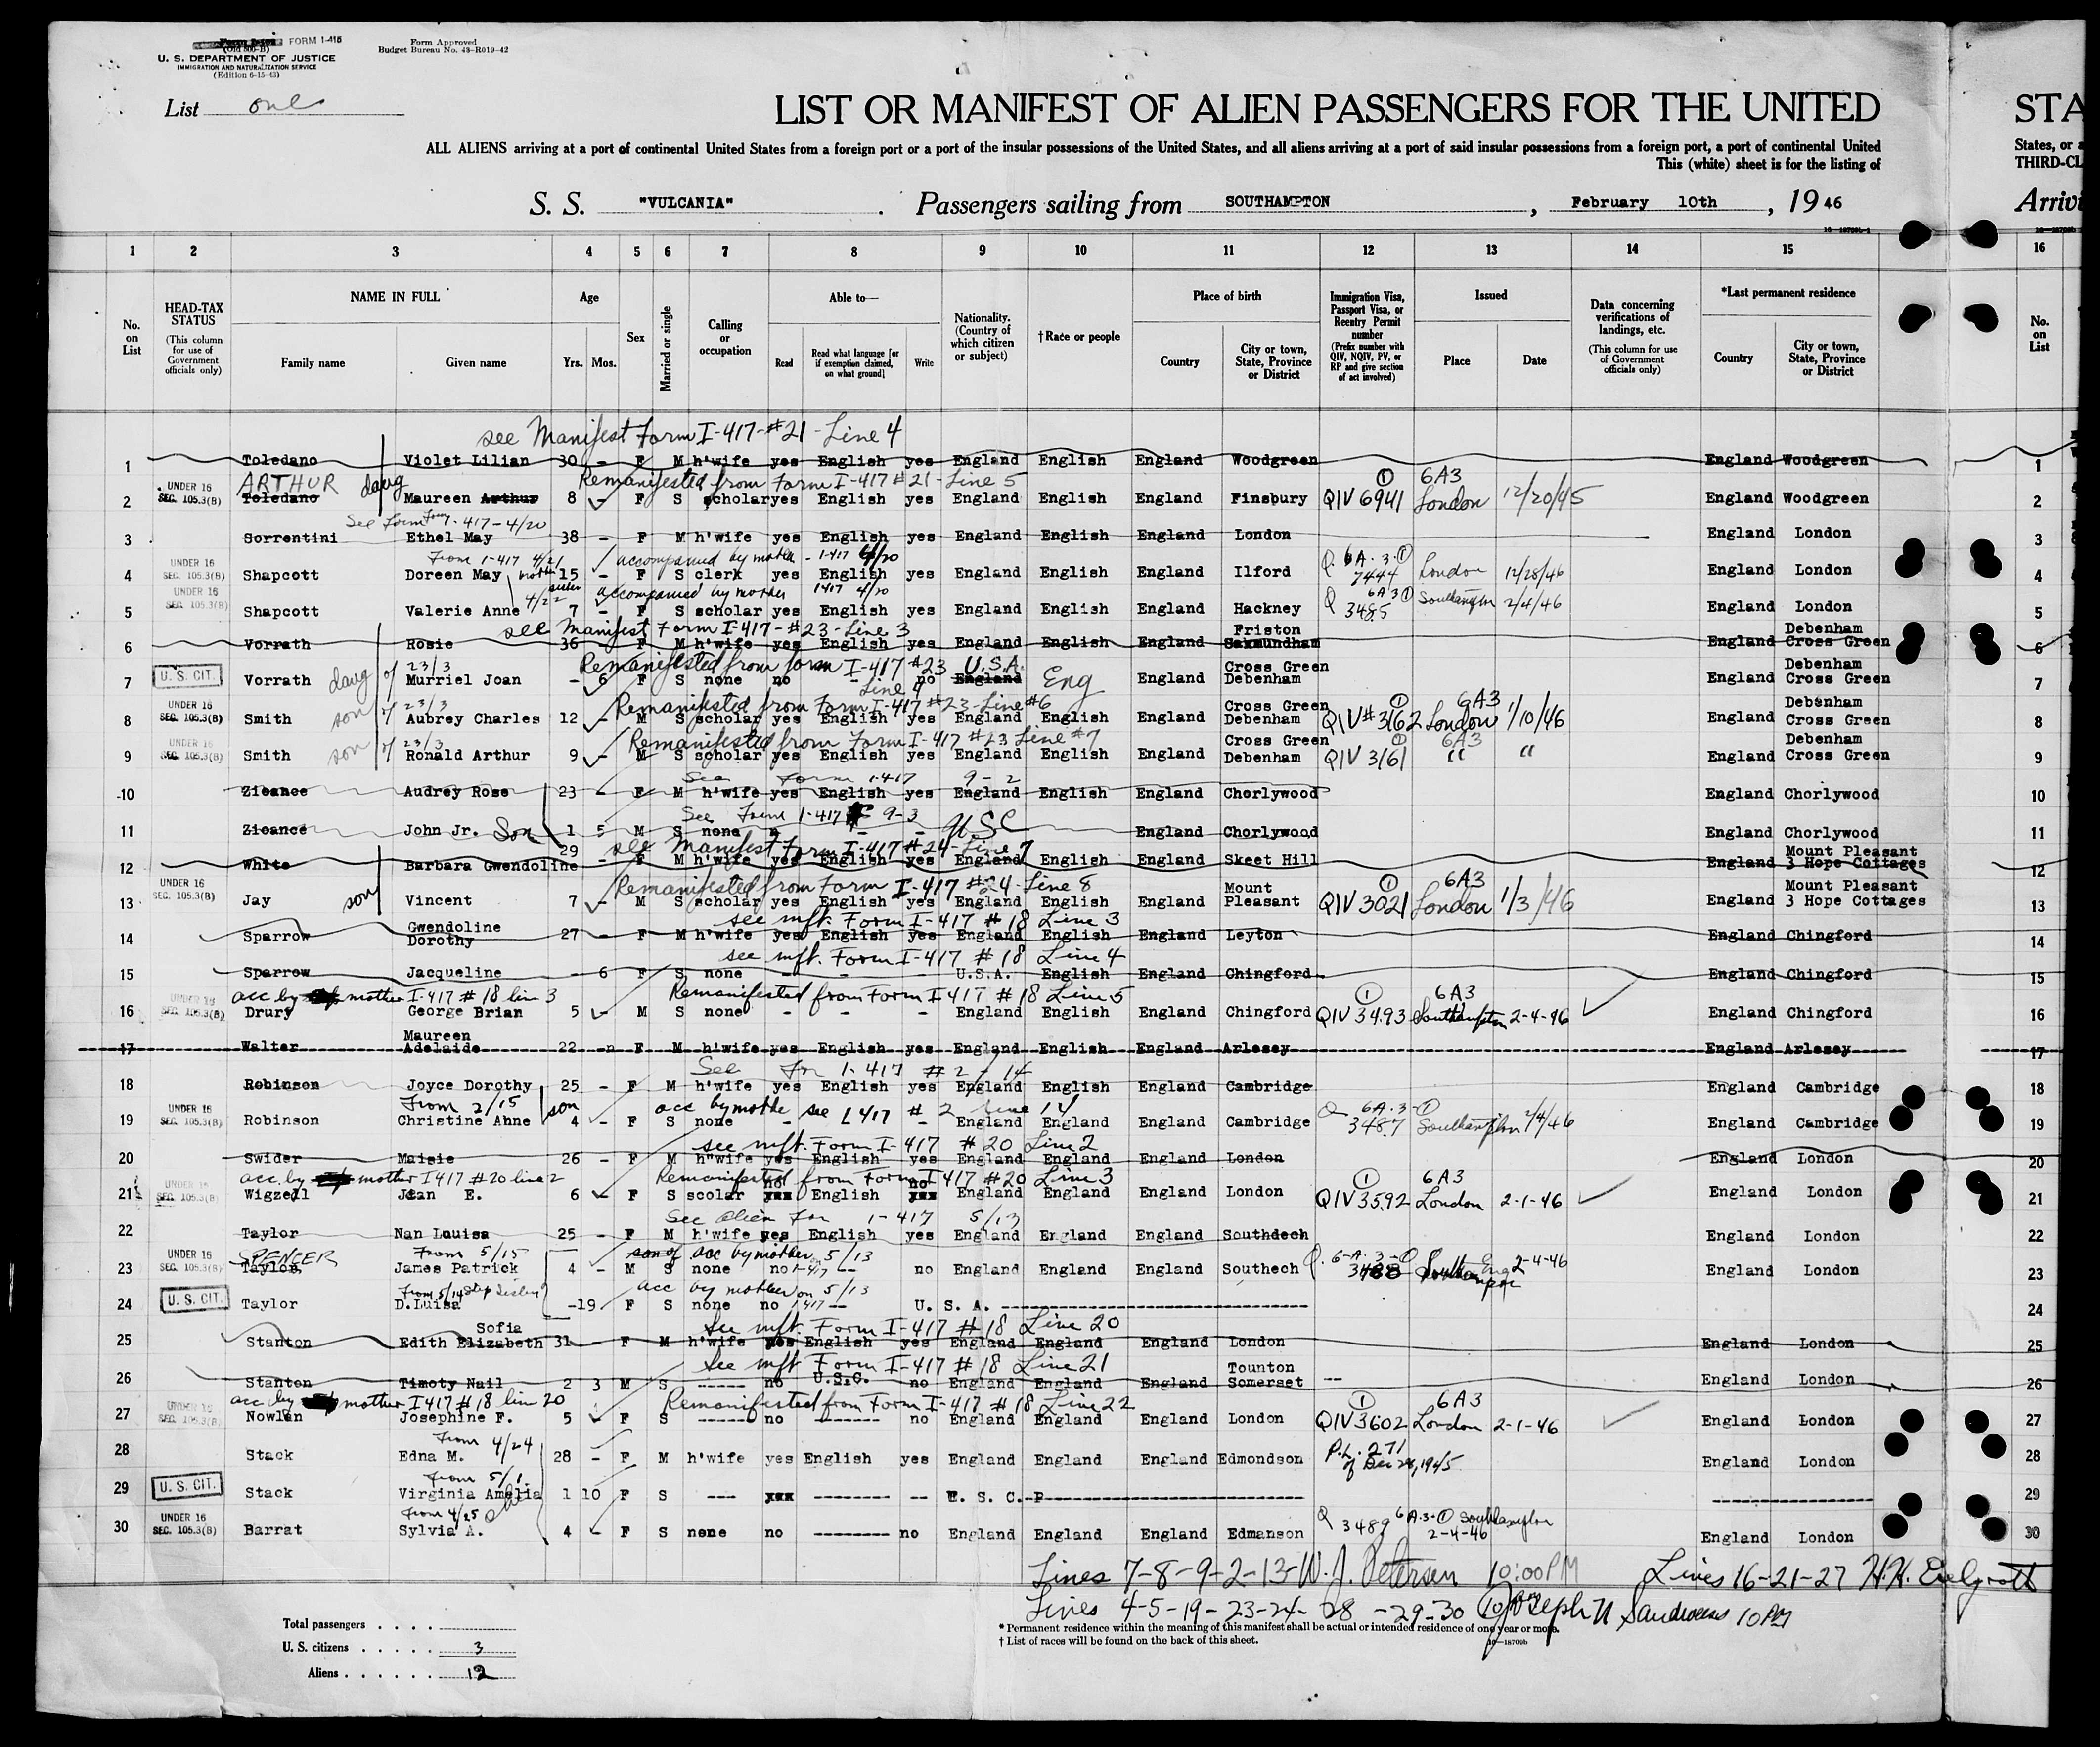 FORM I-415
(Old 500-B)
U. S. DEPARTMENT OF JUSTICE
IMMIGRATION AND NATURALIZATION SERVICE
(Edition 6-15-43)
Form Approved
Budget Bureau No. 43-R019-42
List one
LIST OR MANIFEST OF ALIEN PASSENGERS FOR THE UNITED STA
ALL ALIENS arriving at a port of continental United States from a foreign port or a port of the insular possessions of the United States, and all aliens arriving at a port of said insular possessions from a foreign port, a port of continental United States, or a
This (white) sheet is for the listing of THIRD-CL
S. S. "VULCANIA". Passengers sailing from SOUTHAMPTON, February 10th, 19 46 Arrivi
1 2 3 4 5 6 7 8 9 10 11 12 13 14 15 16
No. on List
HEAD-TAX STATUS (This column for use of Government officials only)
NAME IN FULL Family name Given name
Age Yrs. Mos.
Sex
Married or single
Calling or occupation
Able to— Read Read what language [or if exemption claimed, on what ground] Write
Nationality. (Country of which citizen or subject)
†Race or people
Place of birth Country City or town, State, Province or District
Immigration Visa, Passport Visa, or Reentry Permit number (Prefix number with QIV, NQIV, PV, or RP and give section of act involved)
Issued Place Date
Data concerning verifications of landings, etc. (This column for use of Government officials only)
*Last permanent residence Country City or town, State, Province or District
No. on List
see Manifest Form I-417-#21-Line 4
1 Toledano Violet Lilian 30 - F M h'wife yes English yes England English England Woodgreen England Woodgreen 1
UNDER 16 ARTHUR daug Remanifested from Form I-417 #21-Line 5 ① 6A3
2 SEC. 105.3(B) Toledano Maureen Arthur 8 F S scholar yes English yes England English England Finsbury QIV 6941 London 12/20/45 England Woodgreen 2
See Form I-417-4/20
3 Sorrentini Ethel May 38 - F M h'wife yes English yes England English England London England London 3
From 1-417 4/21 accompanied by mother - 1-417 4/20
UNDER 16 6A.3.①
4 SEC. 105.3(B) Shapcott Doreen May 15 - F S clerk yes English yes England English England Ilford Q 7444 London 12/28/46 England London 4
UNDER 16 sister 4/22 accompanied by mother 1417 4/20 6A3①
5 SEC. 105.3(B) Shapcott Valerie Anne 7 - F S scholar yes English yes England English England Hackney Q 3485 Southampton 2/4/46 England London 5
see Manifest Form I-417-#23-Line 3 Friston Debenham
6 Vorrath Rosie 36 - F M h'wife yes English yes England English England Saxmundham England Cross Green 6
of 23/3 Remanifested from form I-417 #23 Line 4 U.S.A. Cross Green Debenham
7 U. S. CIT. Vorrath daug Murriel Joan - 6 F S none no - no England Eng England Debenham England Cross Green 7
UNDER 16 of 23/3 Remanifested from Form I-417 #23-Line #6 Cross Green ① 6A3 Debenham
8 SEC. 105.3(B) Smith son Aubrey Charles 12 - M S scholar yes English yes England English England Debenham QIV#3162 London 1/10/46 England Cross Green 8
UNDER 16 of 23/3 Remanifested from Form I-417 #23 Line #7 Cross Green ① 6A3 Debenham
9 SEC. 105.3(B) Smith son Ronald Arthur 9 - M S scholar yes English yes England English England Debenham QIV 3161 " " England Cross Green 9
See Form 1-417 9-2
10 Zicance Audrey Rose 23 - F M h'wife yes English yes England English England Chorlywood England Chorlywood 10
See Form 1-417 9-3
11 Zicance John Jr. Son 1 5 M S none - - USC England Chorlywood England Chorlywood 11
29 see Manifest Form I-417 #24-Line 7 Mount Pleasant
12 White Barbara Gwendoline - F M h'wife yes English yes England English England Skeet Hill England 3 Hope Cottages 12
UNDER 16 Remanifested from Form I-417 #24-Line 8 Mount ① 6A3 Mount Pleasant
13 SEC. 105.3(B) Jay son Vincent 7 - M S scholar yes English yes England English England Pleasant QIV 3021 London 1/3/46 England 3 Hope Cottages 13
Gwendoline see mft. Form I-417 #18 Line 3
14 Sparrow Dorothy 27 - F M h'wife yes English yes England English England Leyton England Chingford 14
see mft. Form I-417 #18 Line 4
15 Sparrow Jacqueline - 6 F S none - - - U.S.A. English England Chingford England Chingford 15
acc by mother I-417 #18 line 3 Remanifested from Form I-417 #18 Line 5 ① 6A3
16 UNDER 16 SEC. 105.3(B) Drury George Brian 5 - M S none - - - England English England Chingford QIV 3493 Southampton 2-4-46 England Chingford 16
Maureen
17 Walter Adelaide 22 F M h'wife yes English yes England English England Arlesey England Arlesey 17
See Fm 1-417 #2/14
18 Robinson Joyce Dorothy 25 - F M h'wife yes English yes England English England Cambridge England Cambridge 18
UNDER 16 From 2/15 son acc by mothe see 1417 #2 line 14 Q 6A.3-①
19 SEC. 105.3(B) Robinson Christine Ahne 4 - F S none - - England England England Cambridge 3487 Southampton 2/4/46 England Cambridge 19
see mft. Form I-417 #20 Line 2
20 Swider Maisie 26 - F M h"wife yes English yes England England England London England London 20
acc by mother I 417 #20 line 2 Remanifested from Form I 417 #20 Line 3 no no ① 6A3
21 UNDER 16 SEC. 105.3(B) Wigzell Jean E. 6 - F S scolar yes English yes England England England London QIV 3592 London 2-1-46 England London 21
See Alien Fm 1-417 5/13
22 Taylor Nan Louisa 25 - F M h'wife yes English yes England England England Southdech England London 22
UNDER 16 SPENCER From 5/15 son of acc by mother on 5/13 Q. 6-A.3-①
23 SEC. 105.3(B) Taylor, James Patrick 4 - M S none no 1-417 no England England England Southech 3488 Southampton Eng 2-4-46 England London 23
From 5/14 step sister acc by mother on 5/13
24 U. S. CIT. Taylor D.Luisa -19 F S none no 1417 -- U. S. A. 24
Sofia See mft. Form I-417 #18 Line 20
25 Stanton Edith Elizabeth 31 - F M h'wife yes English yes England England England London England London 25
See mft Form I-417 #18 Line 21 U.S.C. Tounton
26 Stanton Timoty Nail 2 3 M S ----- no no England England England Somerset -- England London 26
acc by mother I 417 #18 line 20 Remanifested from Form I-417 #18 Line 22 ① 6A3
27 UNDER 16 SEC. 105.3(B) Nowlan Josephine F. 5 - F S ----- no ------ no England England England London QIV 3602 London 2-1-46 England London 27
From 4/24 P.L. 271
28 Stack Edna M. 28 - F M h'wife yes English yes England England England Edmondson of Dec 28, 1945 England London 28
From 5/1
29 U. S. CIT. Stack Virginia Amelia 1 10 F S --- -------- -- U. S. C. 29
UNDER 16 From 4/25 Q 6A.3-① Southampton
30 SEC. 105.3(B) Barrat Sylvia A. 4 - F S none no -------- no England England England Edmanson 3489 2-4-46 England London 30
Lines 7-8-9-2-13-W. J. Petersen 10:00PM Lines 16-21-27 H.H.
Lines 4-5-19-23-24-28-29-30 Joseph 10 PM
Total passengers . . . .
U. S. citizens . . . . . 3
Aliens . . . . . . 12
* Permanent residence within the meaning of this manifest shall be actual or intended residence of one year or more.
† List of races will be found on the back of this sheet.
16-18709b